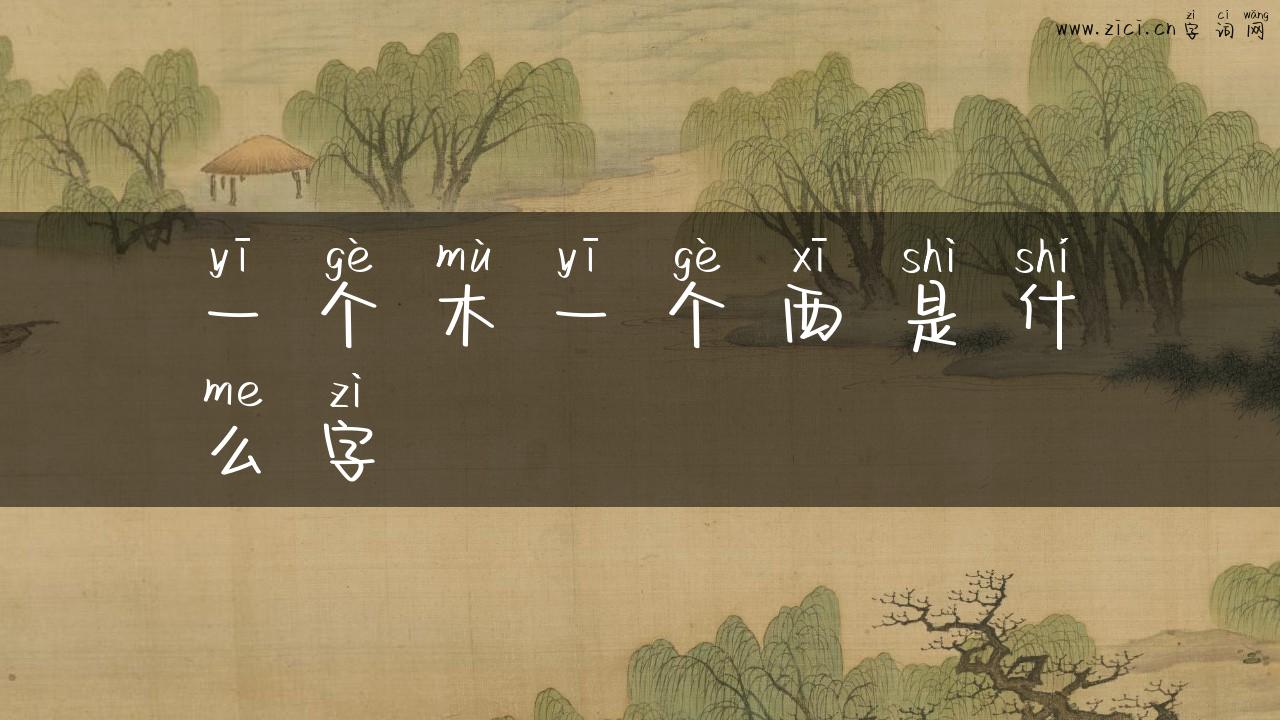 zì cí wǎng
www.zici.cn 字 词 网
yī gè mù yī gè xī shì shí
一 个 木 一 个 西 是 什
me zì
么 字